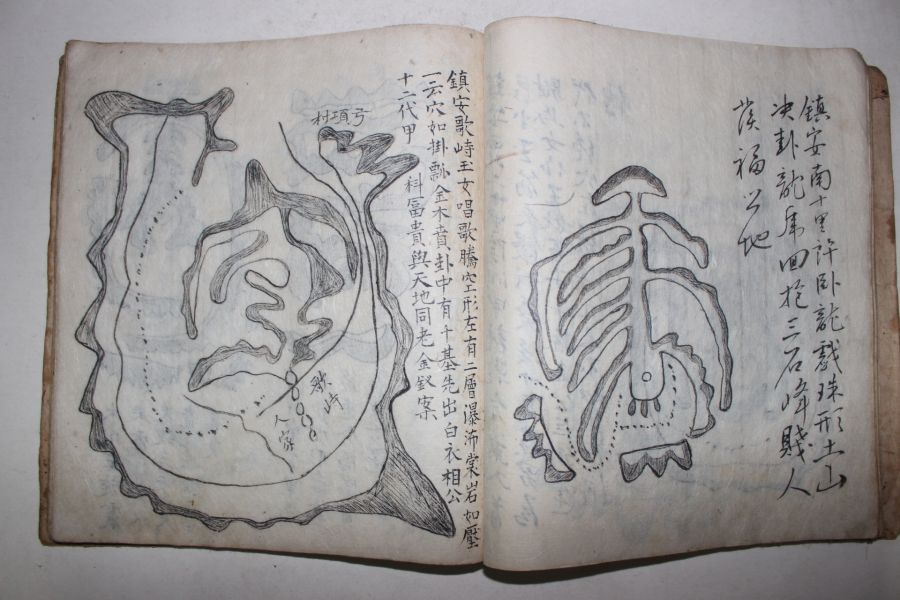 鎮安南十里許卧龍戱珠形土山
決卦龍虎回抱三石峰賤人
發福之地
鎮安歌峙玉女唱歌騰空形左有二層瀑沛棠岩如壓
一云穴如掛瓢金木賁卦中有千基先出白衣相公
十二代甲科冨貴與天地同老金釵案
弓項村
歌峙
人家